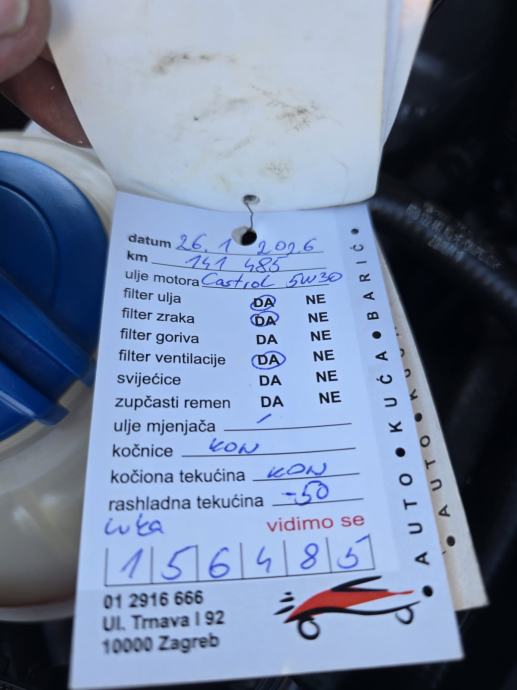 datum 26. 1 2026
km 141 485
ulje motora Castrol 5W30
filter ulja DA NE
filter zraka DA NE
filter goriva DA NE
filter ventilacije DA NE
svijećice DA NE
zupčasti remen DA NE
ulje mjenjača /
kočnice KON
kočiona tekućina KON
rashladna tekućina -50
Luka vidimo se
156485
01 2916 666
Ul. Trnava I 92
10000 Zagreb
• AUTO • KUĆA • BARIĆ •
• AUTO • KU